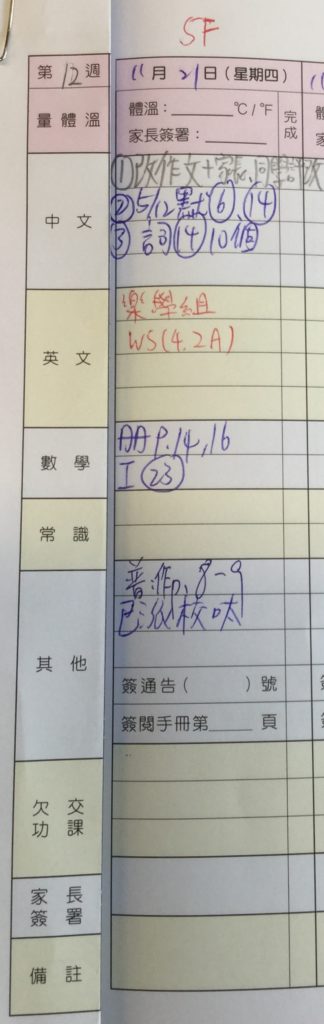 5F
第12週
11月21日(星期四)
量體溫
體溫:______℃/℉
家長簽署:______
完成
中文
①改作文+家長、同學評改
②5/12默⑥、⑭
③詞⑭10個
英文
樂學組
WS(4.2A)
數學
AA P.14,16
I㉓
常識
其他
普作p.8-9
已派校呔
簽通告(      )號
簽閱手冊第____頁
欠交功課
家長簽署
備註